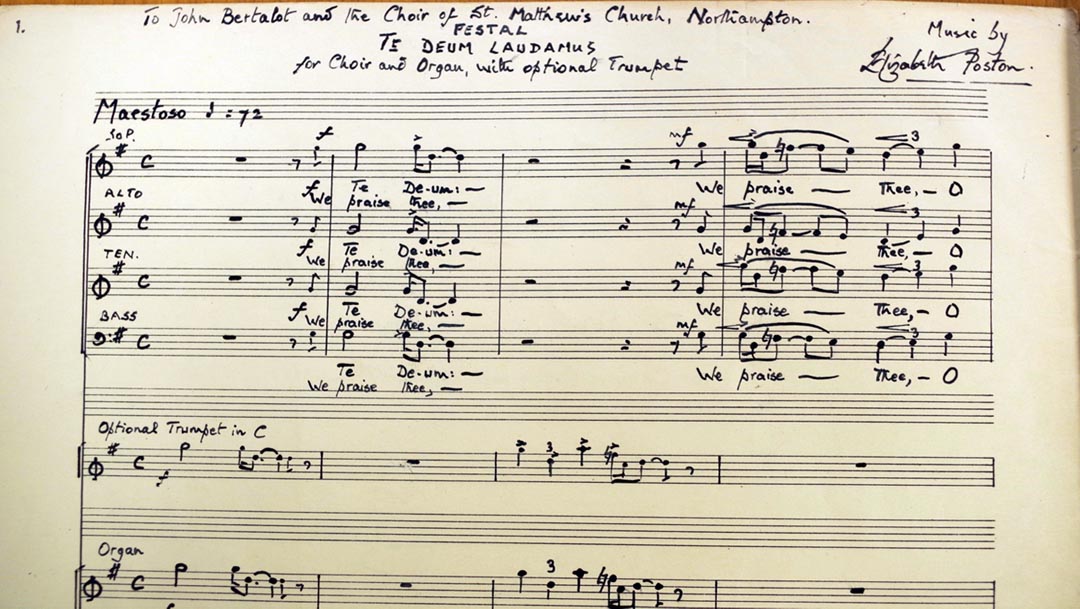 1.
To John Bertalot and the Choir of St. Matthew's Church, Northampton.
FESTAL
TE DEUM LAUDAMUS
for Choir and Organ, with optional Trumpet
Music by
Elizabeth Poston.
Maestoso ♩ = 72
SOP.
f mf 3
Te De-um: — We praise — Thee, — O
We praise thee, —
ALTO
f mf 3
Te De-um: — We praise — Thee, — O
We praise thee, —
TEN.
f mf 3
Te De-um: — We praise — Thee, — O
We praise thee, —
BASS
f mf 3
Te De-um: — We praise — Thee, — O
We praise thee, —
Optional Trumpet in C
f 3
Organ
3
f